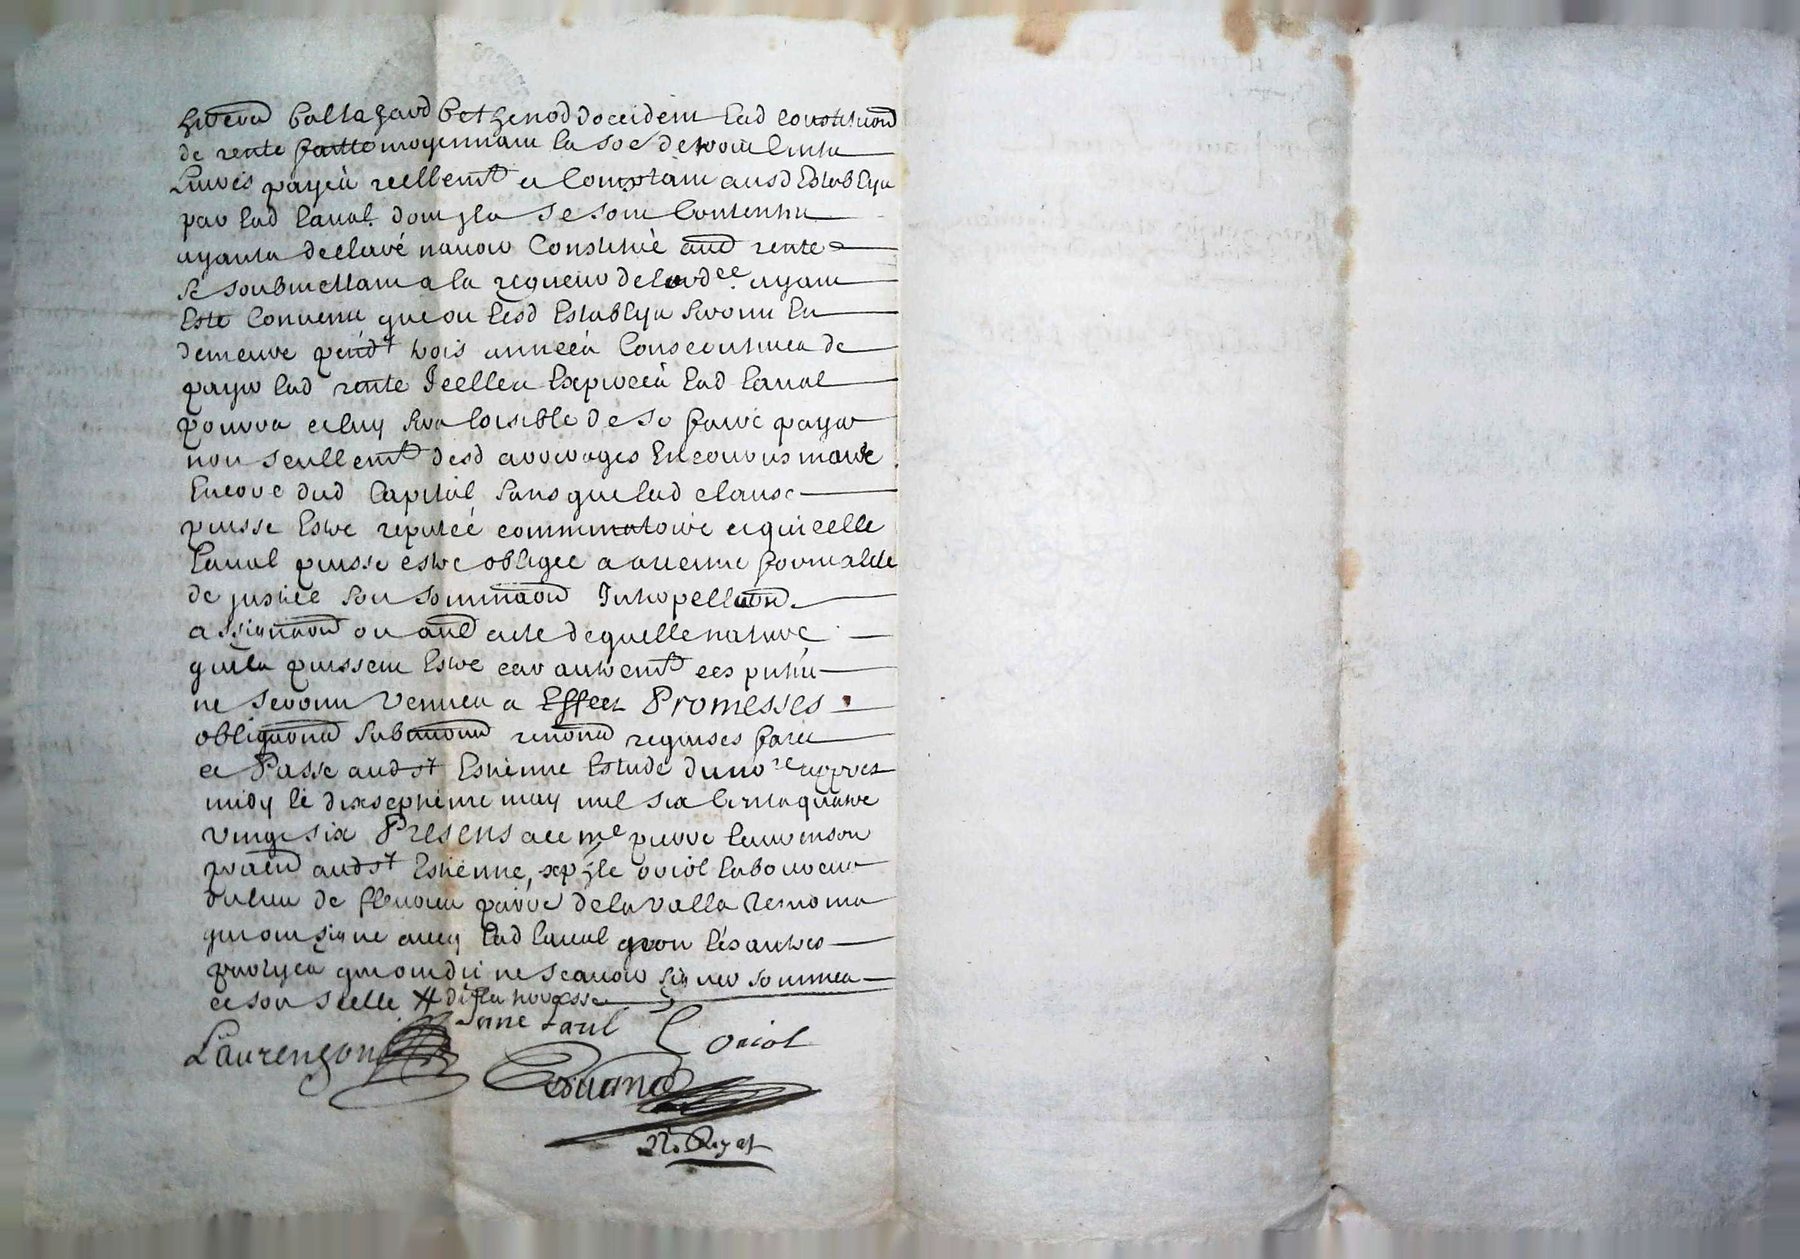 Baltazard Bethenod d'occident lad constituōn
de rente faitte moyennant la so͞e de trois cents
Livres payéà réellemt et Comptant ausd Establys
par lad Laual dont jls se sont Contentes
ayants declaré nauoir Constitué aud rente
se soubmettant a la rigueur de lordce ayant
Este Conuenu que ou lesd Establys seront En
demeure pendt trois annéeà Consecutiues de
payer lad rente Jcelles Expiréeà lad Laual
pourra et luy sera loisible de se faire payer
non seullemt desd arrerages Encourus mais
Encore dud Capital sans que lad clause
puisse Estre reputeé comminatoire et qu'icelle
Laual puisse estre obligee a aucune formalité
de justice soit sommāon Interpellāon
assignāon ou aud acte de quelle nature
quils puissent Estre car autremt ces pntes
ne seront Venues a Effect Promesses
obligāons submāons renōns requises faict
et Passe audt st Estienne Estude du nore appres
midy le dixseptieme may mil six Cents quatre
vingt six Presens a ce me pierre Laurenson
praēn audt st Estienne, et Oriol laboureur
du lieu de flenrieu parre de la valla
qui ont signe auecq lad Laual non les autres
partyes qui ont dit ne scauoir signer sommes
et soit scelle
Jane Laul
Oriol
Laurenson
N. Royet